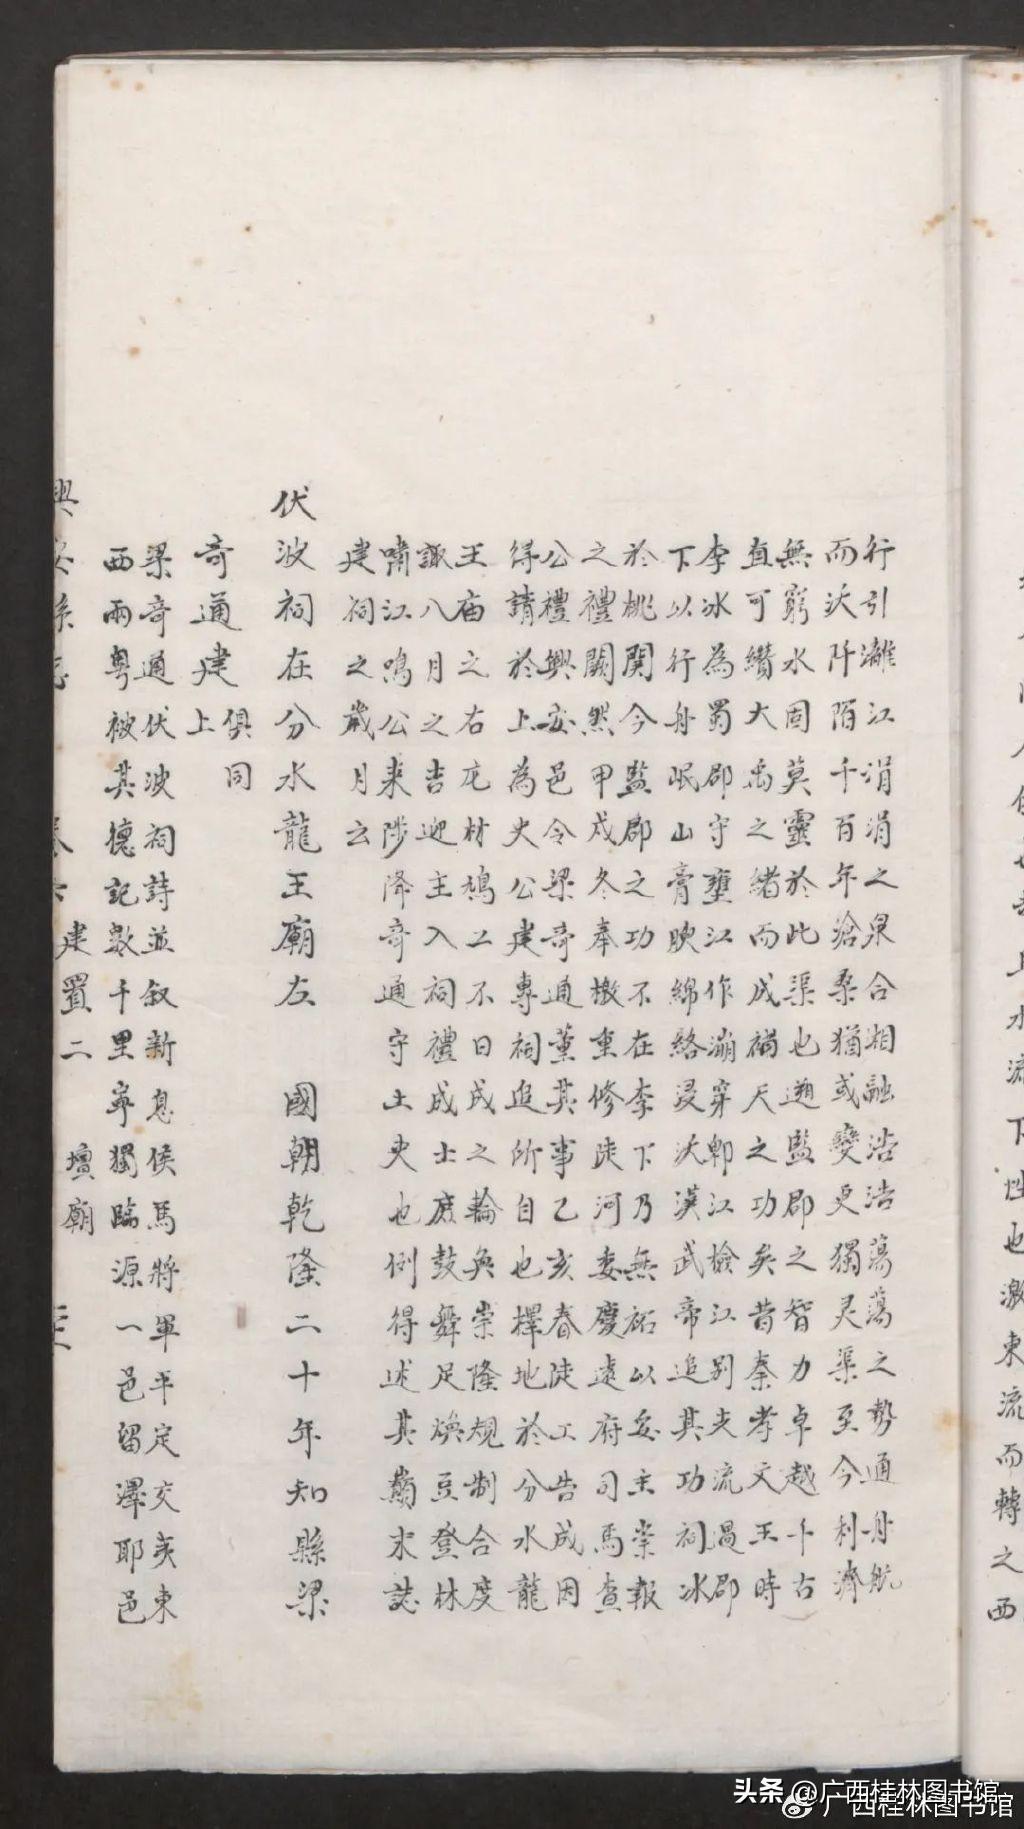 上水流下性也激東流而轉之西
行引灕江涓涓之泉合相融浩浩蕩蕩之勢通舟航
而沃阡陌千百年滄桑猶或變更獨灵渠至今利濟
無窮水固莫靈於此渠也遡監郡之智力卓越千古
直可纘大禹之緒而成補天之功矣昔秦孝文王時
李冰為蜀郡守壅江作堋穿郫江檢江别支流過郡
下以行舟岷山膏腴綿絡浸沃漢武帝追其功祠冰
於桃関今監郡之功不在李下乃無祏以妥主崇報
之禮闕然甲戍冬奉檄重修陡河委慶遠府司馬查
公禮興安邑令梁奇通董其事乙亥春陡工告成因
得請於上為史公建專祠追所自也擇地於分水龍
王庙之右庀材鳩工不日成之輪奐崇隆規制合度
諏八月之吉迎主入祠禮成士庶鼓舞足煥豆登林
嘯江鳴公来陟降奇通守土吏也例得述其巔末誌
建祠之歲月云
伏波祠在分水龍王廟左 國朝乾隆二十年知縣梁
奇通建 俱同上
梁奇通伏波祠詩並叙新息侯馬將軍平定交夷東
西兩粵被其德記數千里寧獨臨源一邑留澤耶邑
興安縣志 卷六 建置二 壇廟
头条 @广西桂林图书馆
广西桂林图书馆